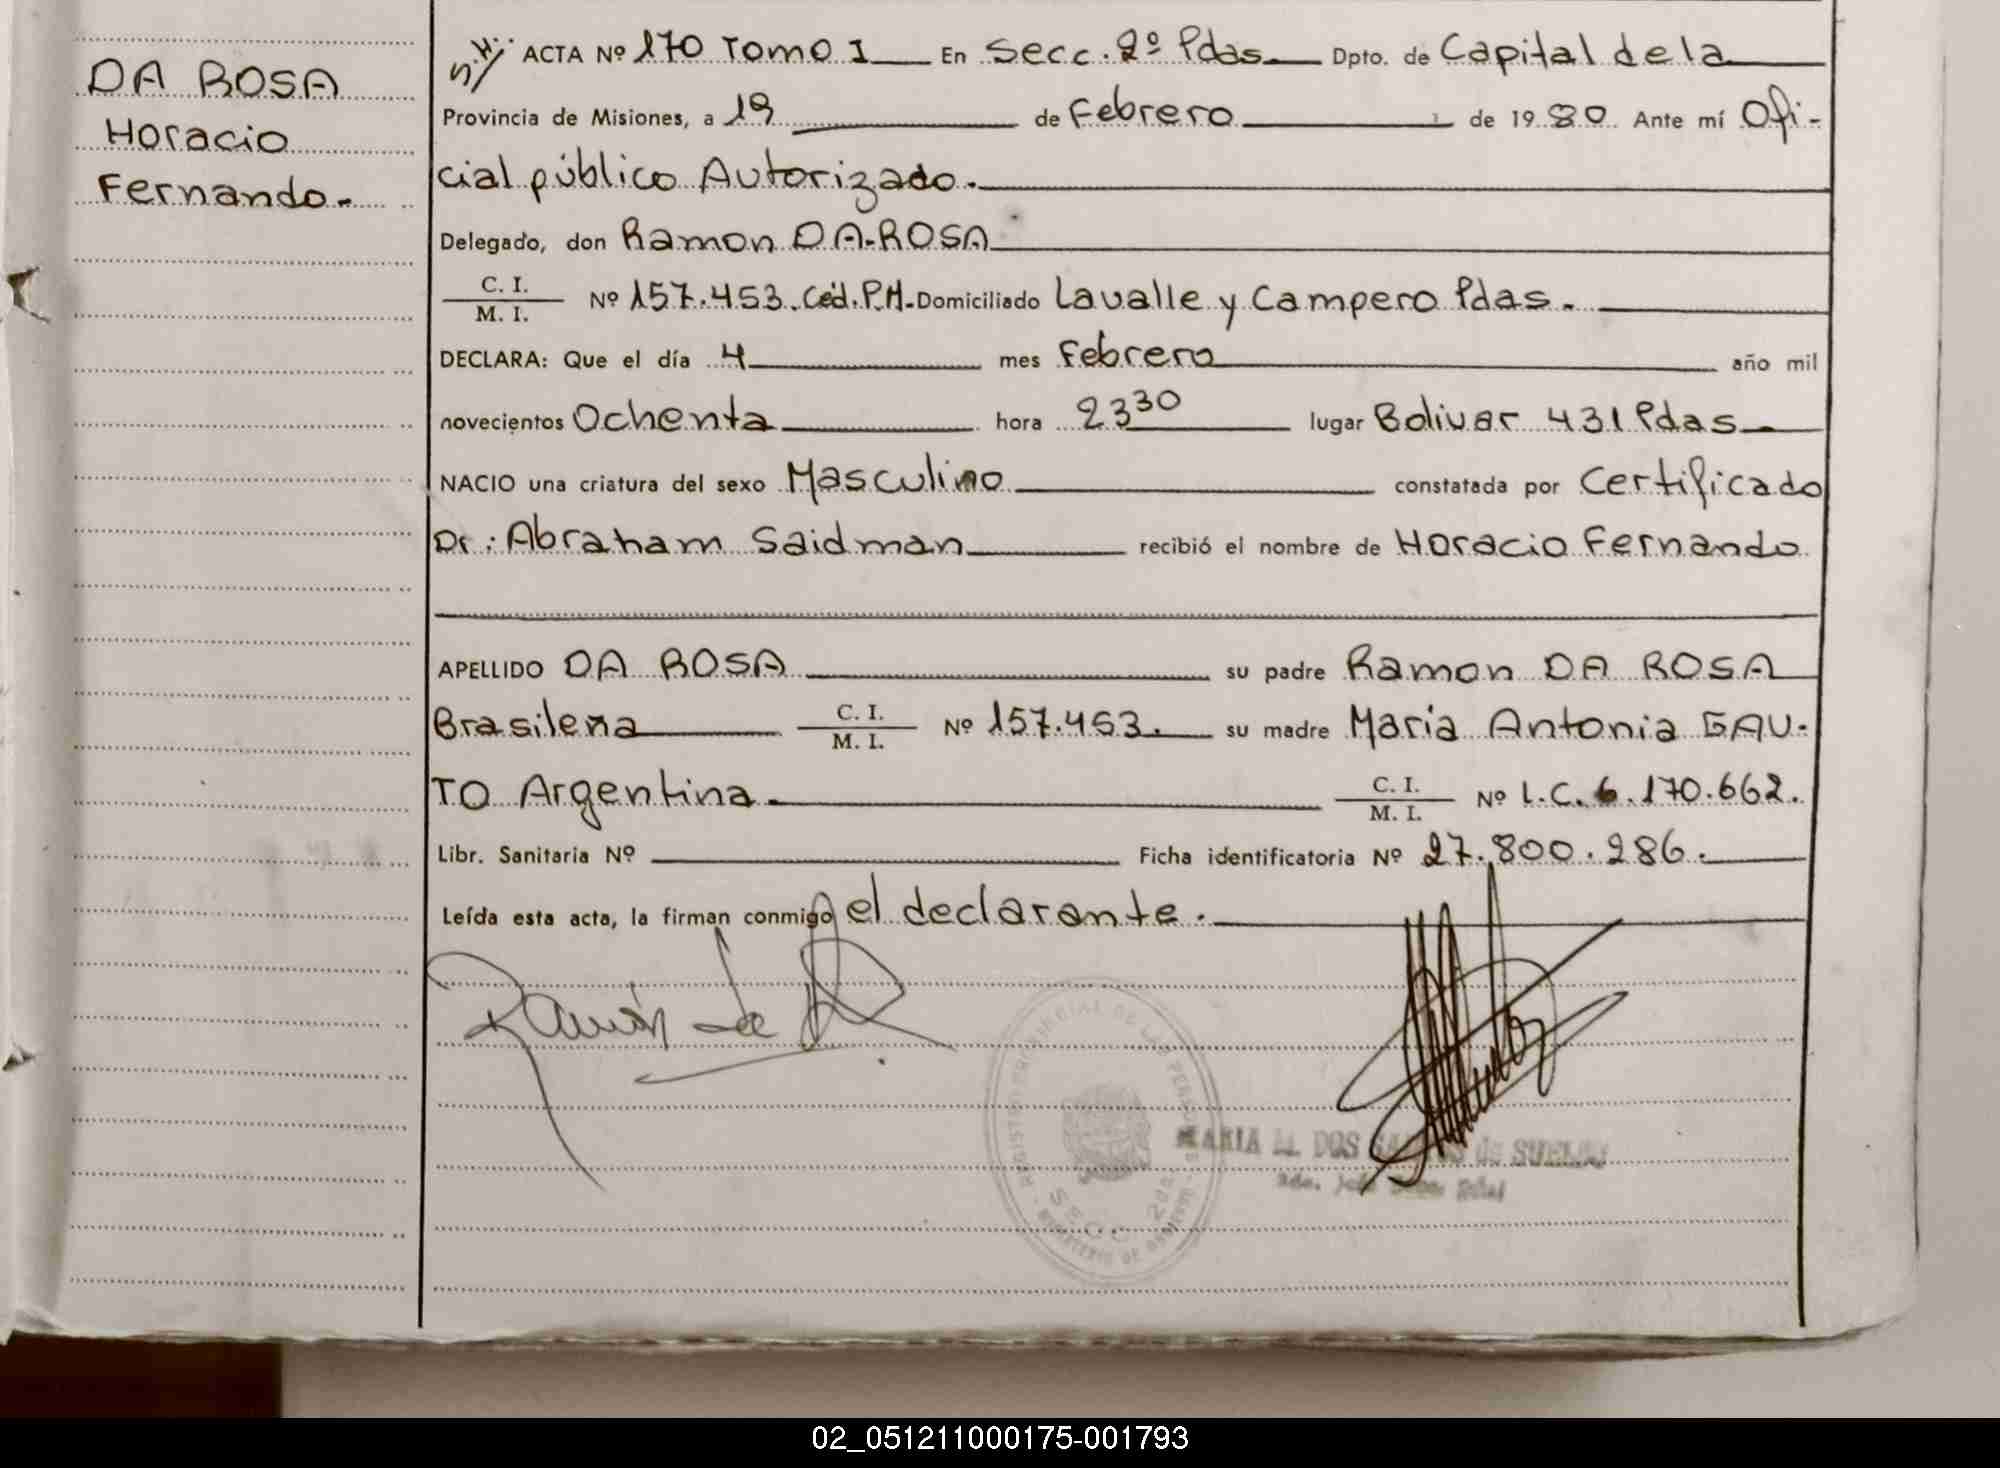 DA ROSA
Horacio
Fernando.-
ACTA Nº 170 Tomo I En Secc. 2º Pdas. Dpto. de Capital de la
Provincia de Misiones, a 19 de Febrero de 1980 Ante mí Ofi-
cial público Autorizado.
Delegado, don Ramon DA-ROSA
C. I.
M. I.
Nº 157.453. Céd. P.M. Domiciliado Lavalle y Campero Pdas.
DECLARA: Que el día 4 mes Febrero año mil
novecientos Ochenta hora 23 30 lugar Bolivar 431 Pdas
NACIO una criatura del sexo Masculino constatada por Certificado
Dr: Abraham Saidman recibió el nombre de Horacio Fernando
APELLIDO DA ROSA su padre Ramon DA ROSA
Brasilena C. I. M. I. Nº 157.453. su madre Maria Antonia GAU-
TO Argentina. C. I. M. I. Nº L.C. 6.170.662.
Libr. Sanitaria Nº Ficha identificatoria Nº 27.800.286.
Leída esta acta, la firman conmigo el declarante.
Ramón
MARIA M. DOS SANTOS de
02_051211000175-001793